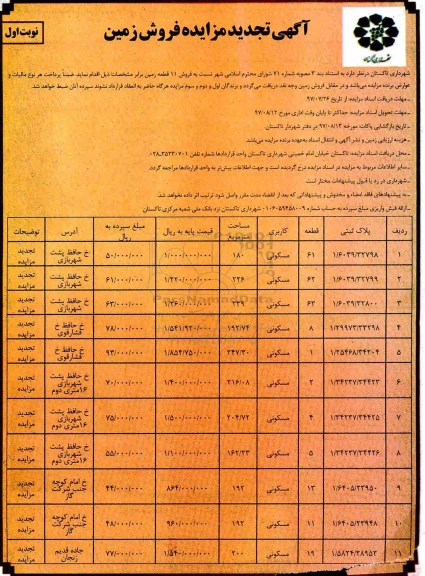 آگهی تجدید مزایده فروش زمین
نوبت اول
شهرداری تاکستان درنظر دارد به استناد بند ۳ مصوبه شماره ۲۱ شورای محترم اسلامی شهر نسبت به فروش ۱۱ قطعه زمین برابر مشخصات ذیل اقدام نماید. ضمناً پرداخت هر نوع مالیات و
عوارض برنده مزایده می‌باشد و در مقابل فروش زمین وجه نقد دریافت می‌گردد و برندگان اول و دوم و سوم مزایده هرگاه حاضر به انعقاد قرارداد نشوند سپرده آنان ضبط خواهد شد.
-مهلت دریافت اسناد مزایده: از تاریخ ۹۷/۰۷/۲۶
-مهلت تحویل اسناد مزایده: حداکثر تا پایان وقت اداری مورخ ۹۷/۰۸/۱۲
-تاریخ بازگشایی پاکات: مورخه ۹۷/۰۸/۱۳ در دفتر شهردار تاکستان
-هزینه ارزیابی زمین و نشر آگهی و انتقال اسناد به‌عهده برنده مزایده می‌باشد.
-محل دریافت اسناد مزایده: تاکستان خیابان امام خمینی شهرداری تاکستان واحد قراردادها شماره تلفن ۰۲۸-۳۵۲۳۰۷۰۱
-سایر اطلاعات مربوط به مزایده در اسناد مزایده درج گردیده است و جهت اطلاعات بیش‌تر به واحد قراردادها مراجعه گردد.
-شهرداری در رد یا قبول پیشنهادات مختار است.
-به پیشنهادهای فاقد امضاء و مخدوش و پیشنهاداتی که بعد از انقضاء مدت مقرر واصل شود ترتیب اثر داده نخواهد شد.
-ارائه فیش واریزی مبلغ سپرده به حساب شماره ۰۱۰۶۰۵۹۴۵۸۰۰۹ شهرداری تاکستان نزد بانک ملی شعبه مرکزی تاکستان
ردیف پلاک ثبتی قطعه کاربری مساحت مترمربع قیمت پایه به ریال مبلغ سپرده به ریال آدرس توضیحات
۱ ۱/۶۰۳۹/۳۲۷۹۸ ۶۱ مسکونی ۱۸۰ ۱/۰۰۰/۰۰۰/۰۰۰ ۵۰/۰۰۰/۰۰۰ خ حافظ پشت شهربازی تجدید مزایده
۲ ۱/۶۰۳۹/۳۲۷۹۹ ۶۲ مسکونی ۲۲۶ ۱/۲۲۰/۰۰۰/۰۰۰ ۶۱/۰۰۰/۰۰۰ خ حافظ پشت شهربازی تجدید مزایده
۳ ۱/۶۰۳۹/۳۲۸۰۰ ۶۳ مسکونی ۲۳۹ ۱/۲۶۰/۰۰۰/۰۰۰ ۶۳/۰۰۰/۰۰۰ خ حافظ پشت شهربازی تجدید مزایده
۴ ۱/۲۹۹۷۳/۳۳۲۹۸ ۸ مسکونی ۱۹۲/۷۴ ۱/۵۴۱/۹۲۰/۰۰۰ ۷۸/۰۰۰/۰۰۰ خ حافظ خ فشارقوی تجدید مزایده
۵ ۱/۲۵۴۶۸/۳۴۲۰۴ ۱ مسکونی ۲۴۷/۳۰ ۱/۸۵۴/۷۵۰/۰۰۰ ۹۳/۰۰۰/۰۰۰ خ حافظ خ فشارقوی تجدید مزایده
۶ ۱/۳۴۲۳۷/۳۴۴۲۳ ۲ مسکونی ۲۱۶/۰۸ ۱/۴۰۰/۰۰۰/۰۰۰ ۷۰/۰۰۰/۰۰۰ خ حافظ پشت شهربازی ۱۶متری دوم تجدید مزایده
۷ ۱/۳۴۲۳۷/۳۴۴۲۵ ۴ مسکونی ۲۰۴/۷۲ ۱/۵۰۰/۰۰۰/۰۰۰ ۷۵/۰۰۰/۰۰۰ خ حافظ پشت شهربازی ۱۶متری دوم تجدید مزایده
۸ ۱/۳۴۲۳۷/۳۴۴۲۶ ۵ مسکونی ۱۶۲/۳۳ ۱/۱۰۰/۰۰۰/۰۰۰ ۵۵/۰۰۰/۰۰۰ خ حافظ پشت شهربازی ۱۶متری دوم تجدید مزایده
۹ ۱/۶۴۰۵/۳۳۹۵۰ ۱۳ مسکونی ۱۹۲ ۸۶۴/۰۰۰/۰۰۰ ۴۴/۰۰۰/۰۰۰ خ امام کوچه جنب شرکت گاز تجدید مزایده
۱۰ ۱/۶۴۰۵/۳۳۹۴۸ ۱۱ مسکونی ۱۹۲ ۹۶۰/۰۰۰/۰۰۰ ۴۸/۰۰۰/۰۰۰ خ امام کوچه جنب شرکت گاز تجدید مزایده
۱۱ ۱/۵۸۲۴/۲۸۹۵۳ ۱۹ مسکونی ۲۰۰ ۱/۵۴۰/۰۰۰/۰۰۰ ۷۷/۰۰۰/۰۰۰ جاده قدیم زنجان تجدید مزایده